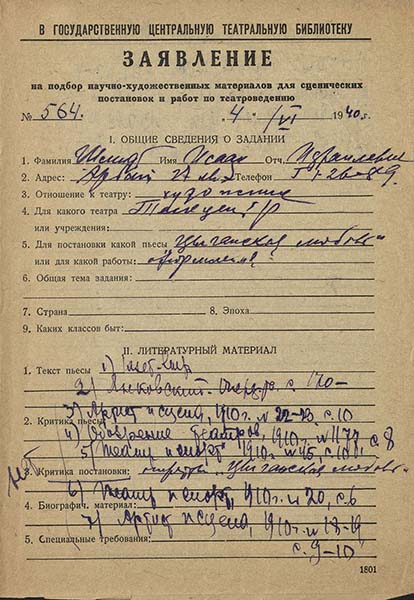 В ГОСУДАРСТВЕННУЮ ЦЕНТРАЛЬНУЮ ТЕАТРАЛЬНУЮ БИБЛИОТЕКУ
ЗАЯВЛЕНИЕ
на подбор научно-художественных материалов для сценических
постановок и работ по театроведению
№ 564. 4/VI 1940 г.
I. ОБЩИЕ СВЕДЕНИЯ О ЗАДАНИИ
1. Фамилия Имя Исаак Отч. Израилевич
2. Адрес: Арбат Телефон Г 1-26-89.
3. Отношение к театру: художник
4. Для какого театра
или учреждения:
5. Для постановки какой пьесы „Цыганская любовь"
или для какой работы: оформление
6. Общая тема задания:
7. Страна 8. Эпоха
9. Каких классов быт:
II. ЛИТЕРАТУРНЫЙ МАТЕРИАЛ
1. Текст пьесы 1)
2) Янковский. Оперетта. с. 170-
3) Артист и сцена, 1910 г. № 22-23. с. 10
2. Критика пьесы
4) Обозрение театров, 1910 г. № 1177 с. 8
5) Театр и спорт, 1910 г. № 45, с. 10
3. Критика постановки: оперетты Цыганская любовь
6) Театр и спорт, 1910 г. № 20, с. 6
4. Биографич. материал:
7) Артист и сцена, 1910 г. № 18-19
5. Специальные требования: с. 9-10
1801